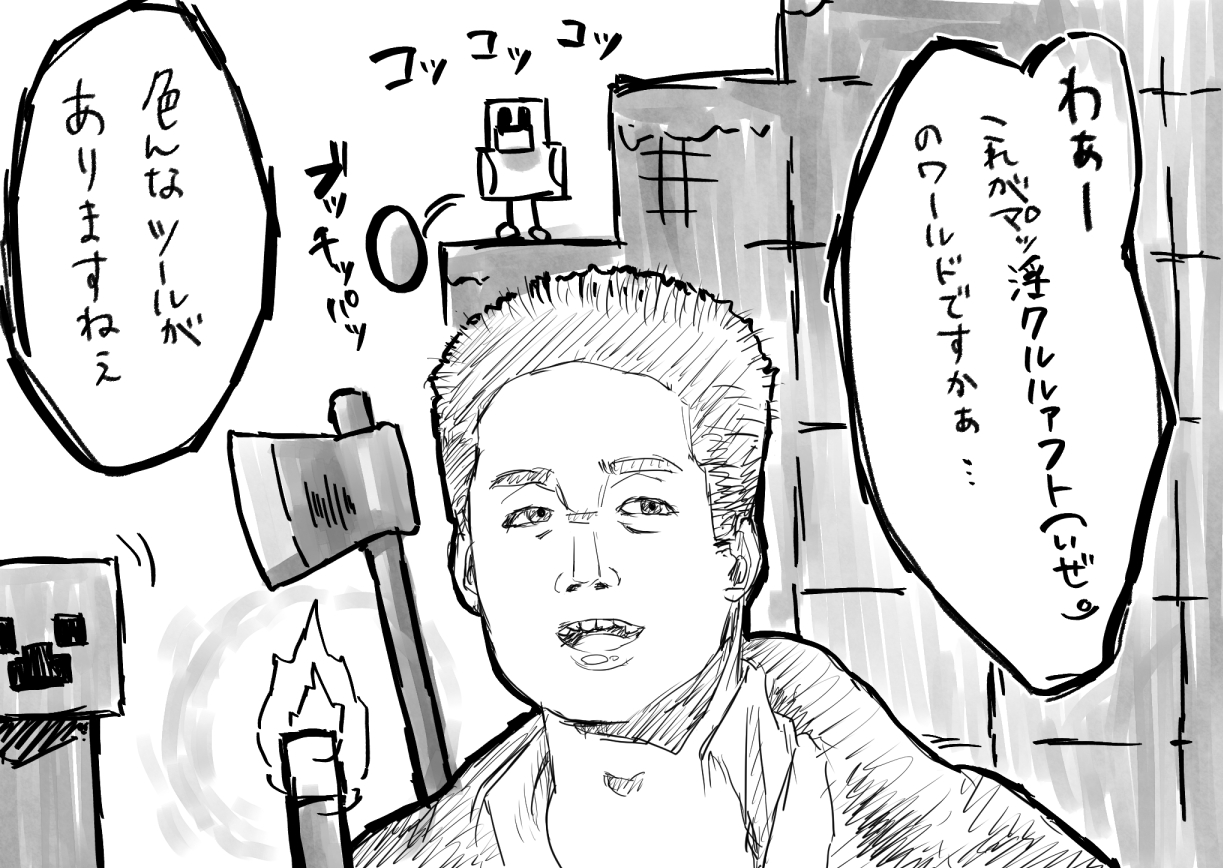 わぁー
これがマッ淫クルルァフト(いぜ。)
のワールドですかぁ…
コッ コッ コッ
ブッチッパッ
色んなツールが
ありますねぇ